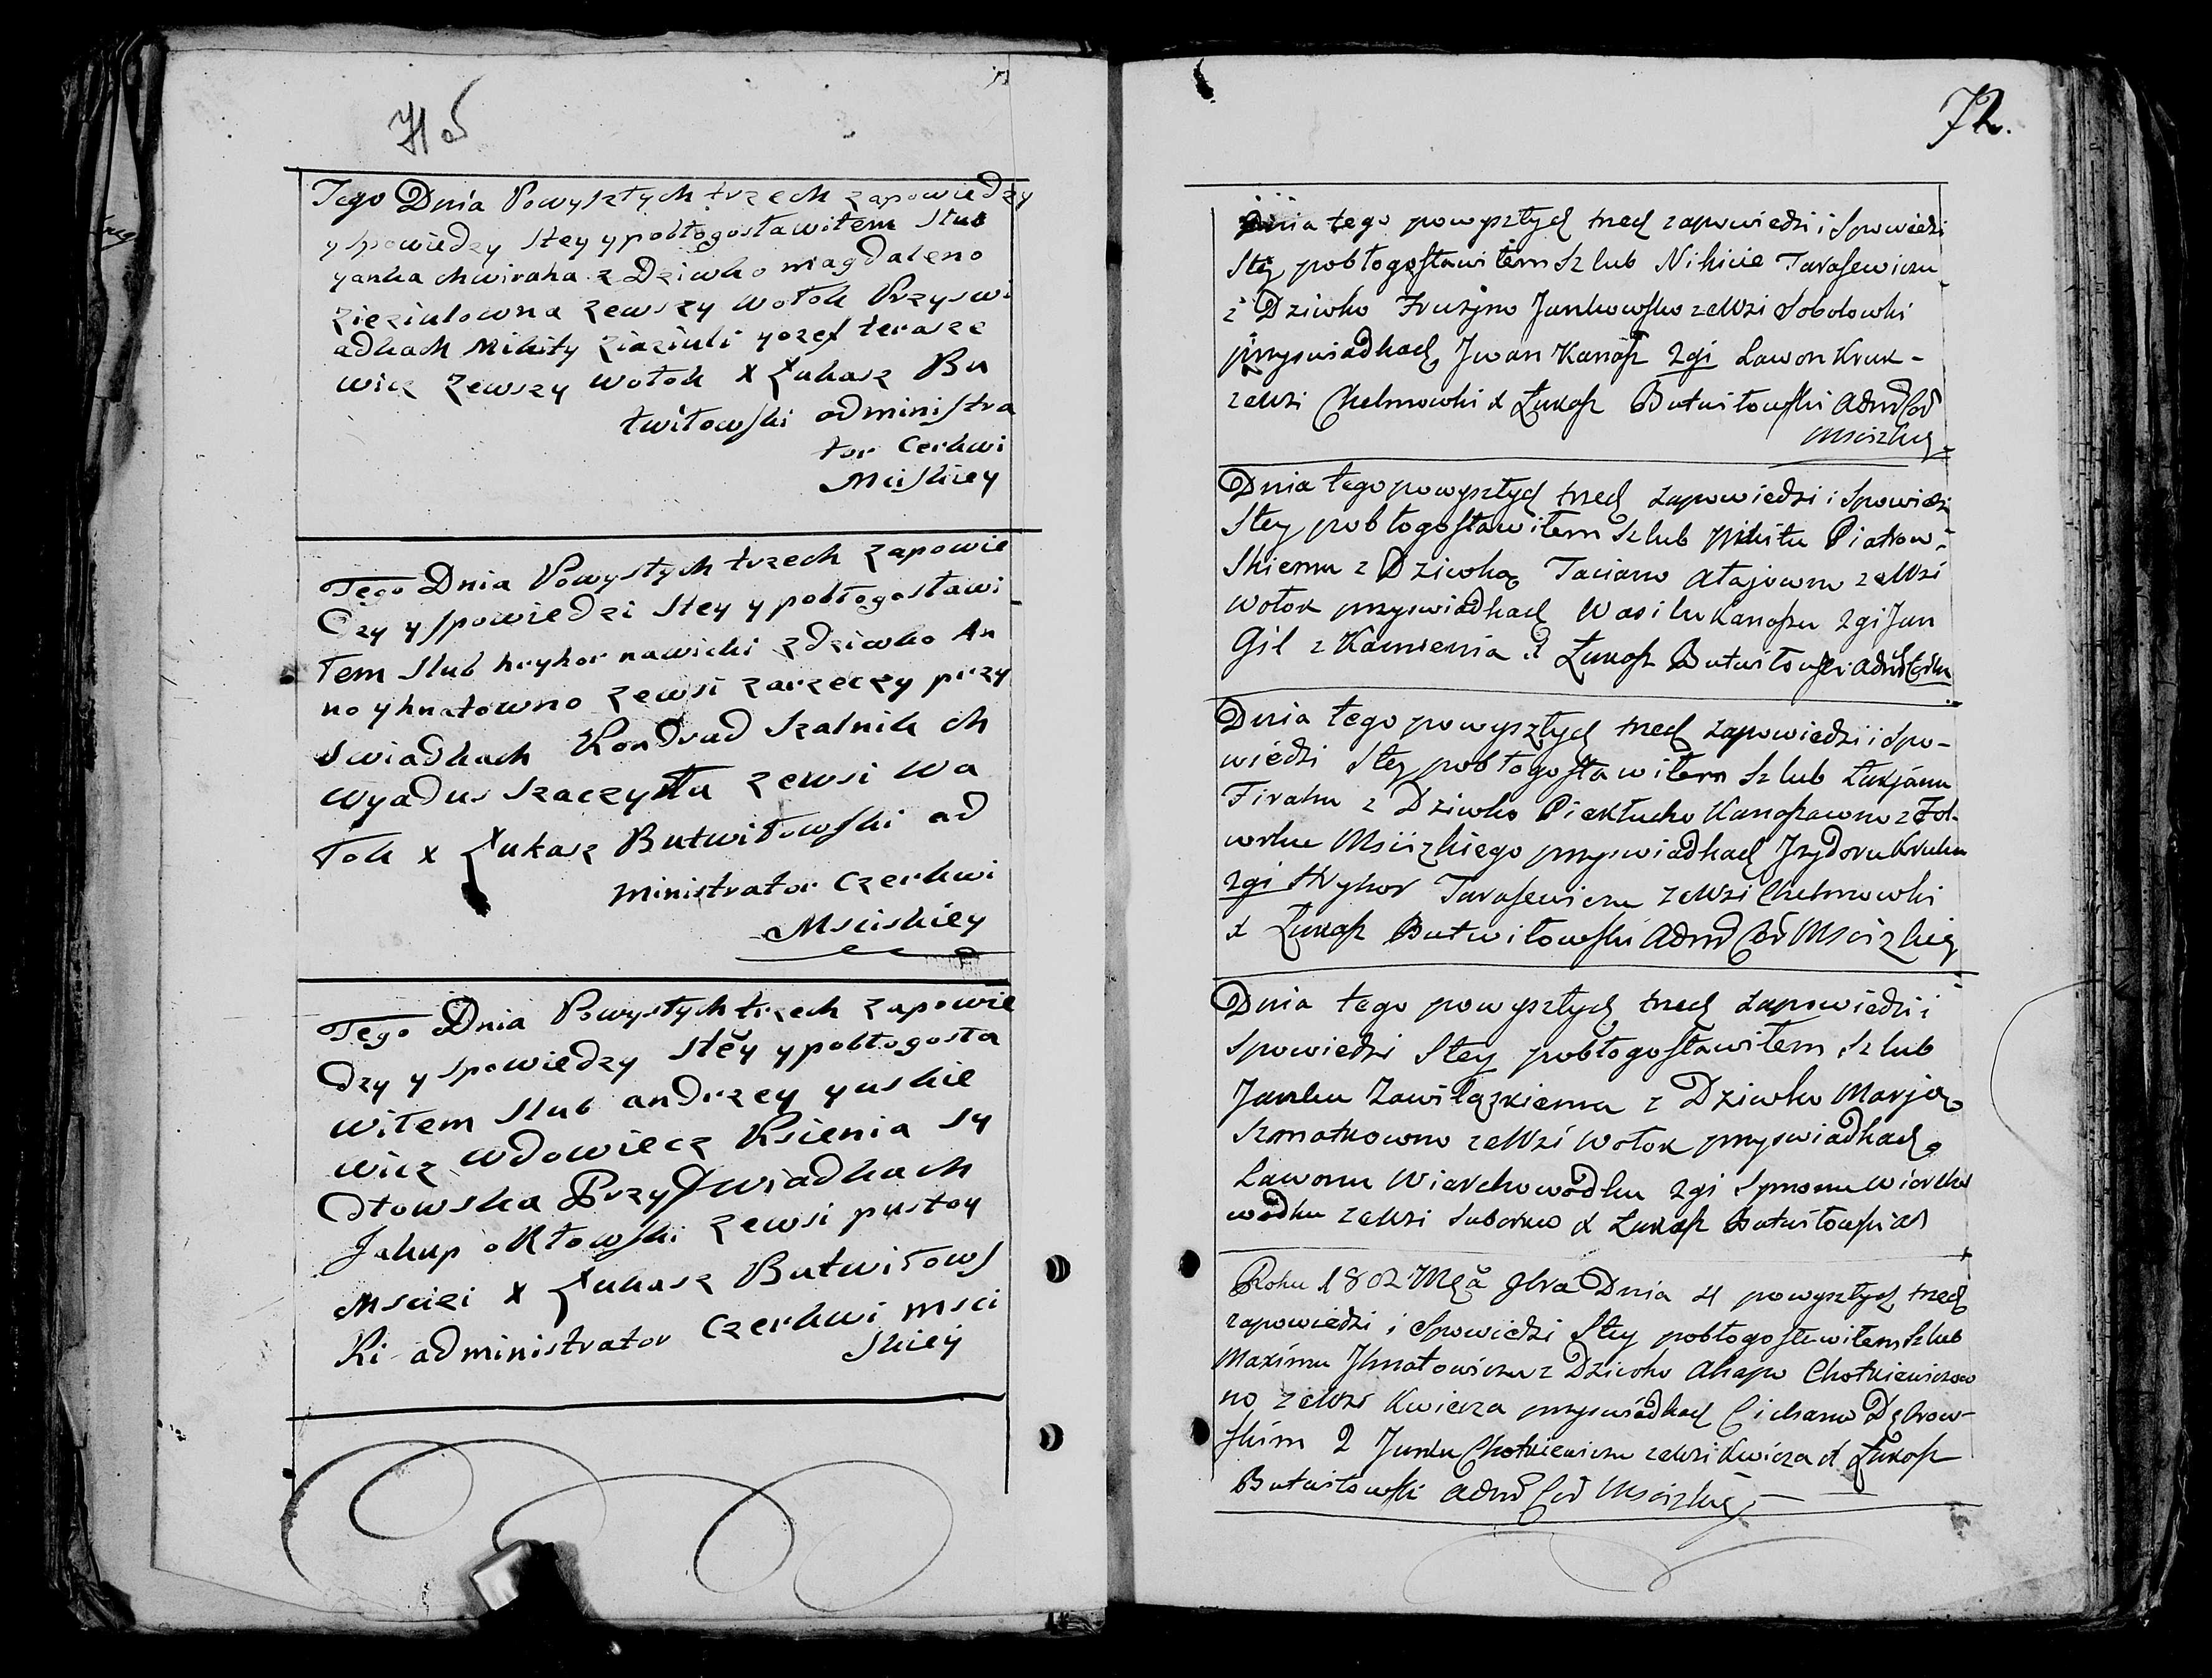 71
Tego Dnia Powysztych trzech zapowiedzy
y spowiedzy Stey y pobłogosławiłem Slub
yanka chwiraha z Dziwko magdaleno
zieziulowna zewszy wołok Przyswi
adkach Mikity ziaziuli yozef terasze
wicz zewszy wołok x Łukasz Bu
twiłowski administra
tor Cerkwi
Mciskiey
Tego Dnia Powystych trzech zapowie
Dzy y spowiedzi Stey y pobłogosławi
łem Slub hryhor nawicki z dziwko An
no yhnatowno zewsi zarzeczy przy
swiadkach Kondrad Szalnik ch
wyadus Szaczytta zewsi wa
łok x Łukasz Butwiłowski ad
ministrator Czerkwi
Msciskiey
Tego Dnia Powystych trzech zapowie
dzy y spowiedzy Stey y pobłogosła
wiłem Slub andrzey yuskie
wicz wdowiecz Ksienia Sy
Przyswiadkach
Jakup okłowski zewsi pustoy
Mscizi x Łukasz Butwiłows
Ki administrator Czerkwi msci
skiey
72.
Dnia tego powyszłych trzech zapowiedzi i Spowiedzi
Stey pobłogosławiłem Szlub Nikicie Tarasewiczu
z Dziwko Fruzyno Jankowsko ze Wsi Sobolowki
przyswiadkach Jwan Kanasz 2gi Lawon Kruk-
ze Wsi Chelmowki x Łukasz Butwiłowski Adm Cer
Mscizkiey
Dnia tego powyszłych trzech zapowiedzi i Spowiedzi
Stey pobłogosławiłem Szlub Mikitu Piatrow-
Skiemu z Dziwko Taciano Atajowno ze Wsi
Wołok przyswiadkach Wasilu Kanaszu 2gi Jan
Gil z Kamienia x Łukasz Butwiłowski Adm
Dnia tego powyszłych trzech zapowiedzi i Spo-
wiedzi Stey pobłogosławiłem Szlub Łukjanu
Firahu z Dziwko Piekłucho Kanaszowno z Fol-
warku Msciizkiego przyswiadkach Jzydoru Kruku
2gi Hryhor Tarasewiczu ze Wsi Chelmowki
x Łukasz Butwiłowski Adm Cer Msciizkiey
Dnia tego powyszłych trzech zapowiedzi i
Spowiedzi Stey pobłogosławiłem Szlub
Janku Zawislazkiemu z Dziwko Marjo
Szmatkowno ze Wsi Wołok przyswiadkach
Lawonu Wiarchowodku 2gi Symonu Wiarcho
wodku ze Wsi x Łukasz Butwiłowski ad
Roku 1802 Mca Dnia 4 powyszłych trzech
zapowiedzi i Spowiedzi Stey pobłogosławiłem Szlub
Maximu Jhnatowiczu z Dziwko Ahapo Chotkiewiczow
no ze Wsi Kwicza przyswiadkach Cichano Dąbrow-
skim 2 Janku Chotkiewiczu ze Wsi Kwicza x Łukasz
Butwiłowski Adm Cer Msciizkiey